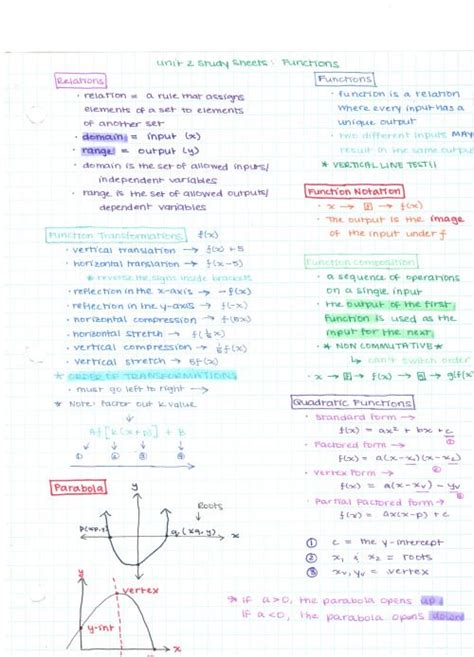 Unit 2 Study Sheets: Functions
Relations
· relation = a rule that assigns
elements of a set to elements
of another set
· domain = input (x)
· range = output (y)
· domain is the set of allowed inputs/
independent variables
· range is the set of allowed outputs/
dependent variables
Function Transformations f(x)
· vertical translation → f(x) + 5
· horizontal translation → f(x-5)
* reverse the signs inside brackets
· reflection in the x-axis → -f(x)
· reflection in the y-axis → f(-x)
· horizontal compression → f(5x)
· horizontal stretch → f(⅕x)
· vertical compression → ⅕f(x)
· vertical stretch → 5f(x)
* ORDER OF TRANSFORMATIONS
· must go left to right →
* Note: Factor out k value
Af[k(x+p)] + B
① ② ③ ④
Parabola
y
Roots
x
vertex
y-int
x
Functions
· function is a relation
where every input has a
unique output
· two different inputs MAY
result in the same output
* VERTICAL LINE TEST!!
Function Notation
· x → f → f(x)
· The output is the image
of the input under f
Function Composition
· a sequence of operations
on a single input
· the output of the first
function is used as the
input for the next
* NON COMMUTATIVE *
↳ can't switch order
· x → f → f(x) → g → g(f(x
Quadratic Functions
· Standard form →
f(x) = ax² + bx + c
①
· Factored form →
f(x) = a(x-x₁)(x-x₂)
②
· Vertex Form →
f(x) = a(x-xᵥ) - yᵥ
③
· Partial Factored form →
f(x) = ax(x-p) + c
① c = the y-intercept
② x₁ & x₂ = roots
③ xᵥ, yᵥ = vertex
* if a>0, the parabola opens up
if a<0, the parabola opens down